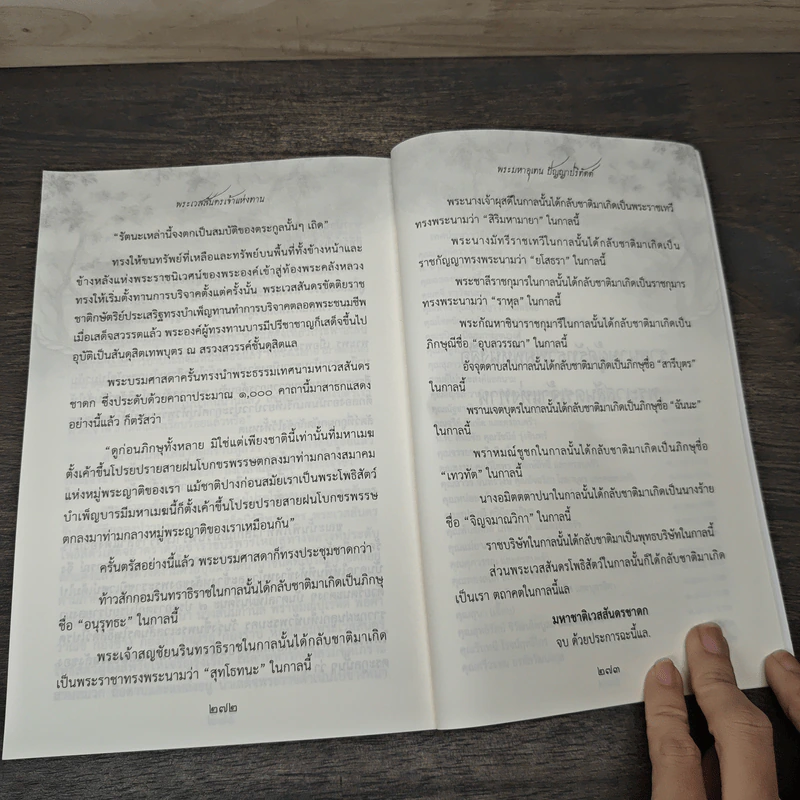 พระเวสสันดรเจ้าแห่งทาน
"รัตนะเหล่านี้จงตกเป็นสมบัติของตระกูลนั้นๆ เถิด"
ทรงให้ขนทรัพย์ที่เหลือและทรัพย์บนพื้นที่ทั้งข้างหน้าและ
ข้างหลังแห่งพระราชนิเวศน์ของพระองค์เข้าสู่ท้องพระคลังหลวง
ทรงให้เริ่มตั้งทานการบริจาคตั้งแต่ครั้งนั้น พระเวสสันดรขัตติยราช
ชาติกษัตริย์ประเสริฐทรงบำเพ็ญทานทำการบริจาคตลอดพระชนมชีพ
เมื่อเสด็จสวรรตแล้ว พระองค์ผู้ทรงทานบารมีปรีชาชาญก็เสด็จขึ้นไป
อุบัติเป็นสันดุสิตเทพบุตร ณ สรวงสวรรค์ชั้นดุสิตแล
พระบรมศาสดาครั้นทรงนำพระธรรมเทศนามหาเวสสันดร
ชาดก ซึ่งประดับด้วยคาถาประมาณ ๑,๐๐๐ คาถานี้มาสาธกแสดง
อย่างนี้แล้ว ก็ตรัสว่า
"ดูก่อนภิกษุทั้งหลาย มิใช่แต่เพียงชาตินี้เท่านั้นที่มหาเมฆ
ตั้งเค้าขึ้นโปรยปรายสายฝนโบกขรพรรษตกลงมาท่ามกลางสมาคม
แห่งหมู่พระญาติของเรา แม้ชาติปางก่อนสมัยเราเป็นพระโพธิสัตว์
บำเพ็ญบารมีมหาเมฆนี้ก็ตั้งเค้าขึ้นโปรยปรายสายฝนโบกขรพรรษ
ตกลงมาท่ามกลางหมู่พระญาติของเราเหมือนกัน"
ครั้นตรัสอย่างนี้แล้ว พระบรมศาสดาก็ทรงประชุมชาดกว่า
ท้าวสักกอมรินทราธิราชในกาลนั้นได้กลับชาติมาเกิดเป็นภิกษุ
ชื่อ "อนุรุทธะ" ในกาลนี้
พระเจ้าสญชัยนรินทราธิราชในกาลนั้นได้กลับชาติมาเกิด
เป็นพระราชาทรงพระนามว่า "สุทโธทนะ" ในกาลนี้
๒๗๒
พระมหาอุเทน ปัญญาปริทัตต์
พระนางเจ้าผุสดีในกาลนั้นได้กลับชาติมาเกิดเป็นพระราชเทวี
ทรงพระนามว่า "สิริมหามายา" ในกาลนี้
พระนางมัทรีราชเทวีในกาลนั้นได้กลับชาติมาเกิดเป็น
ราชกัญญาทรงพระนามว่า "ยโสธรา" ในกาลนี้
พระชาลีราชกุมารในกาลนั้นได้กลับชาติมาเกิดเป็นราชกุมาร
ทรงพระนามว่า "ราหุล" ในกาลนี้
พระกัณหาชินาราชกุมารีในกาลนั้นได้กลับชาติมาเกิดเป็น
ภิกษุณีชื่อ "อุบลวรรณา" ในกาลนี้
อัจจุตดาบสในกาลนั้นได้กลับชาติมาเกิดเป็นภิกษุชื่อ "สารีบุตร"
ในกาลนี้
พรานเจตบุตรในกาลนั้นได้กลับชาติมาเกิดเป็นภิกษุชื่อ "ฉันนะ"
ในกาลนี้
พราหมณ์ชูชกในกาลนั้นได้กลับชาติมาเกิดเป็นภิกษุชื่อ
"เทวทัต" ในกาลนี้
นางอมิตตตาปนาในกาลนั้นได้กลับชาติมาเกิดเป็นนางร้าย
ชื่อ "จิญจมาณวิกา" ในกาลนี้
ราชบริษัทในกาลนั้นได้กลับชาติมาเป็นพุทธบริษัทในกาลนี้
ส่วนพระเวสสันดรโพธิสัตว์ในกาลนั้นก็ได้กลับชาติมาเกิด
เป็นเรา ตถาคตในกาลนี้แล
มหาชาติเวสสันดรชาดก
จบ ด้วยประการฉะนี้แล.
๒๗๓